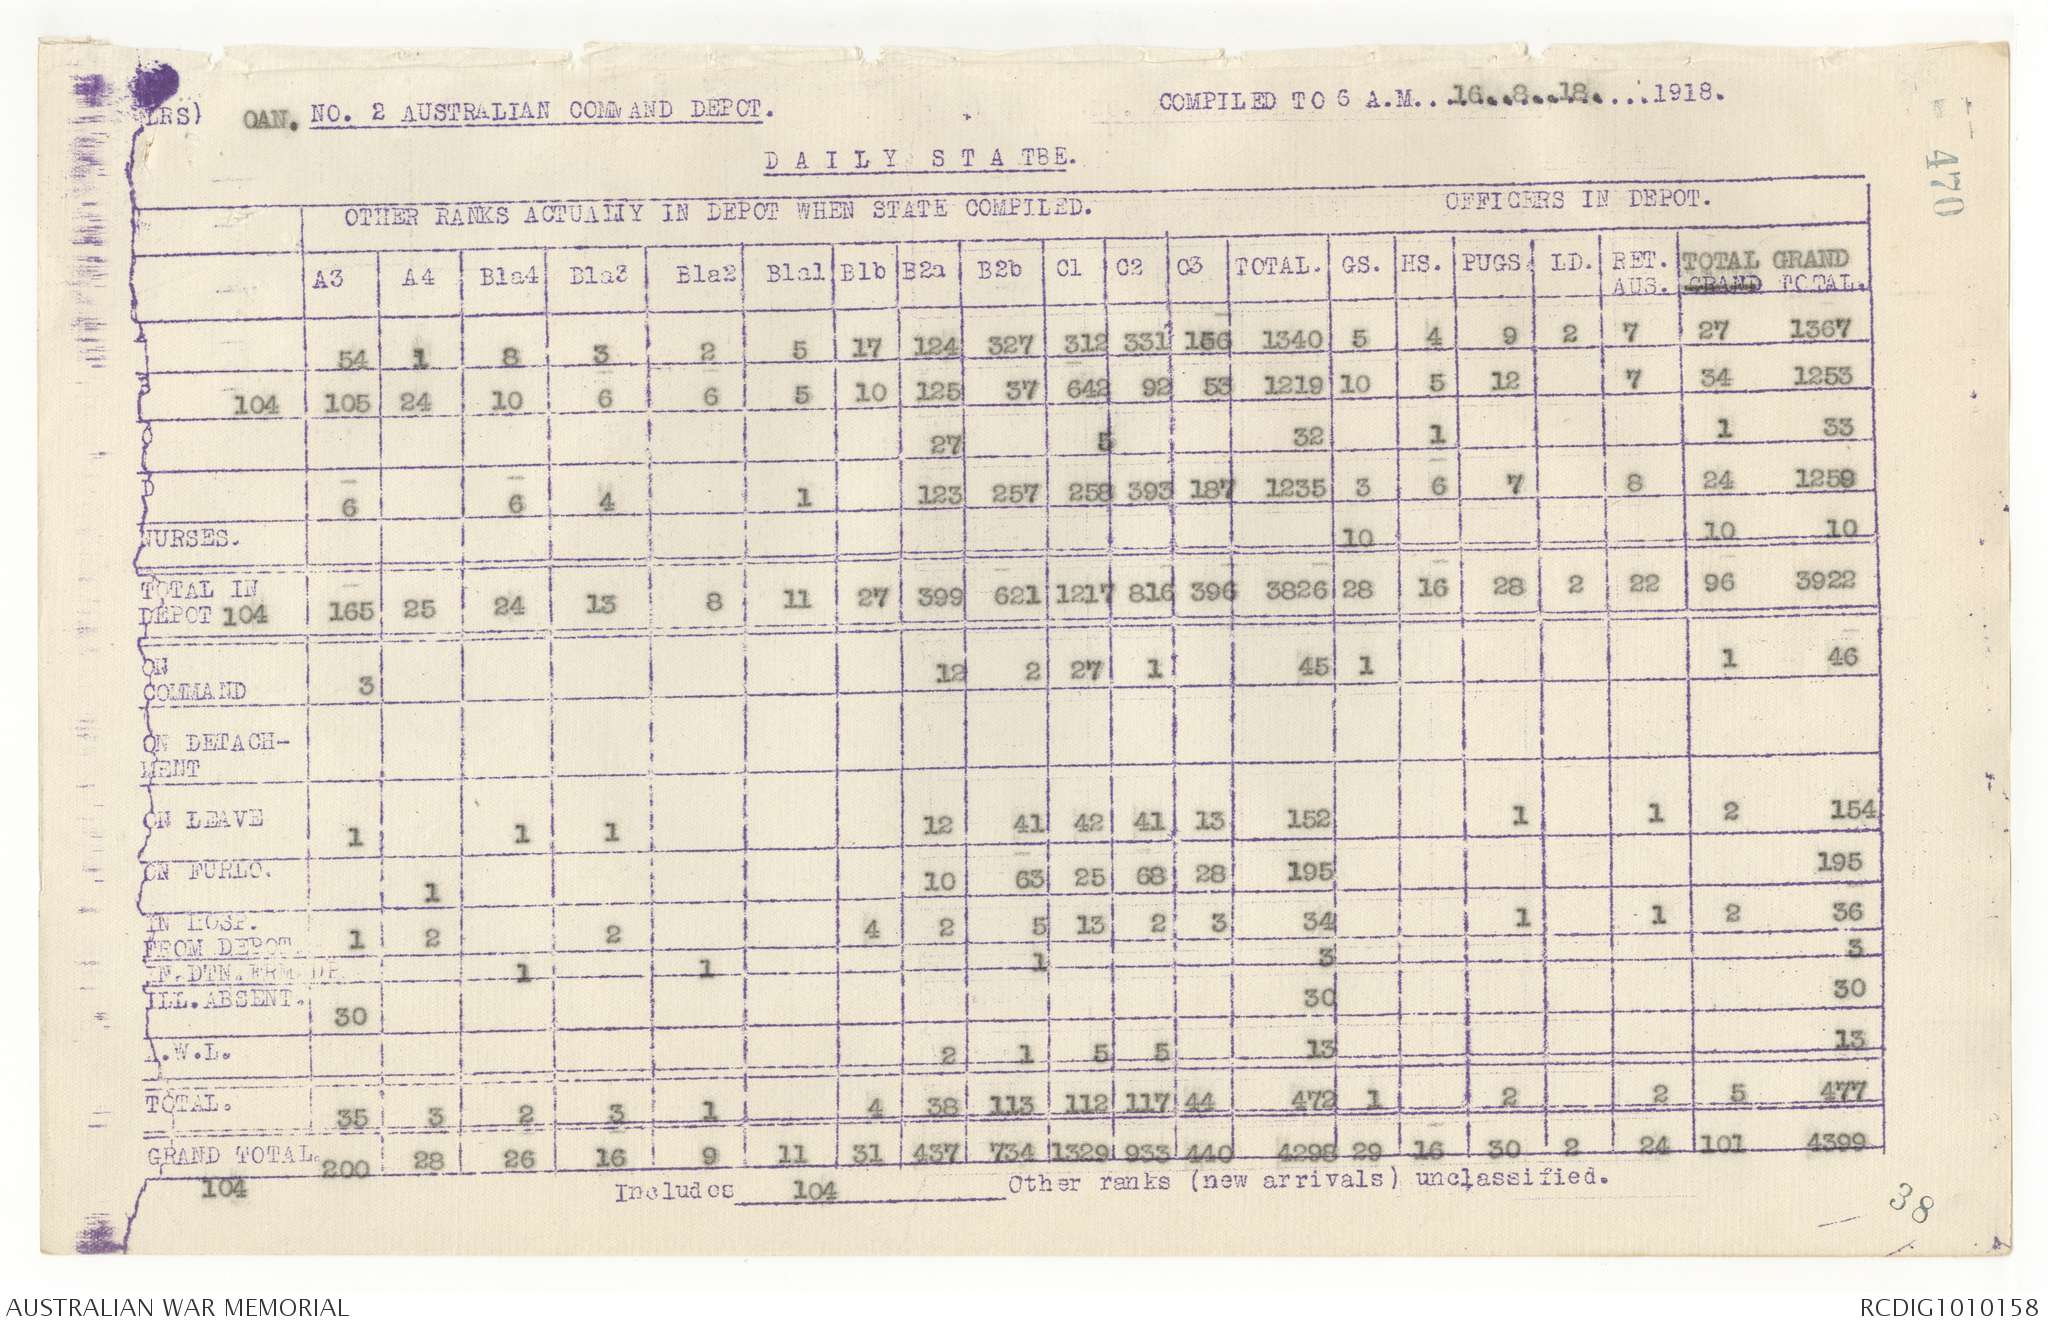 LRS) OAN. NO. 2 AUSTRALIAN COMMAND DEPOT. COMPILED TO 6 A.M...16..8..18.....1918.
470
D A I L Y S T A TBE.
OTHER RANKS ACTUALLY IN DEPOT WHEN STATE COMPILED. OFFICERS IN DEPOT.
A3 A4 B1a4 B1a3 B1a2 B1a1 B1b B2a B2b C1 C2 C3 TOTAL. GS. HS. PUGS. LD. RET. AUS. TOTAL GRAND
GRAND TOTAL.
54 1 8 3 2 5 17 124 327 312 331 156 1340 5 4 9 2 7 27 1367
B 104 105 24 10 6 6 5 10 125 37 642 92 53 1219 10 5 12 7 34 1253
27 5 32 1 1 33
D 6 6 4 1 123 257 258 393 187 1235 3 6 7 8 24 1259
NURSES. 10 10 10
TOTAL IN
DEPOT 104 165 25 24 13 8 11 27 399 621 1217 816 396 3826 28 16 28 2 22 96 3922
ON
COMMAND 3 12 2 27 1 45 1 1 46
ON DETACH-
MENT
ON LEAVE 1 1 1 12 41 42 41 13 152 1 1 2 154
ON FURLO. 1 10 63 25 68 28 195 195
IN HOSP.
FROM DEPOT. 1 2 2 4 2 5 13 2 3 34 1 1 2 36
IN.DTN.FRM DP. 1 1 1 3 3
ILL.ABSENT. 30 30 30
A.W.L. 2 1 5 5 13 13
TOTAL. 35 3 2 3 1 4 38 113 112 117 44 472 1 2 2 5 477
GRAND TOTAL. 200 28 26 16 9 11 31 437 734 1329 933 440 4298 29 16 30 2 24 101 4399
104 Includes 104 Other ranks (new arrivals) unclassified.
38
AUSTRALIAN WAR MEMORIAL RCDIG1010158